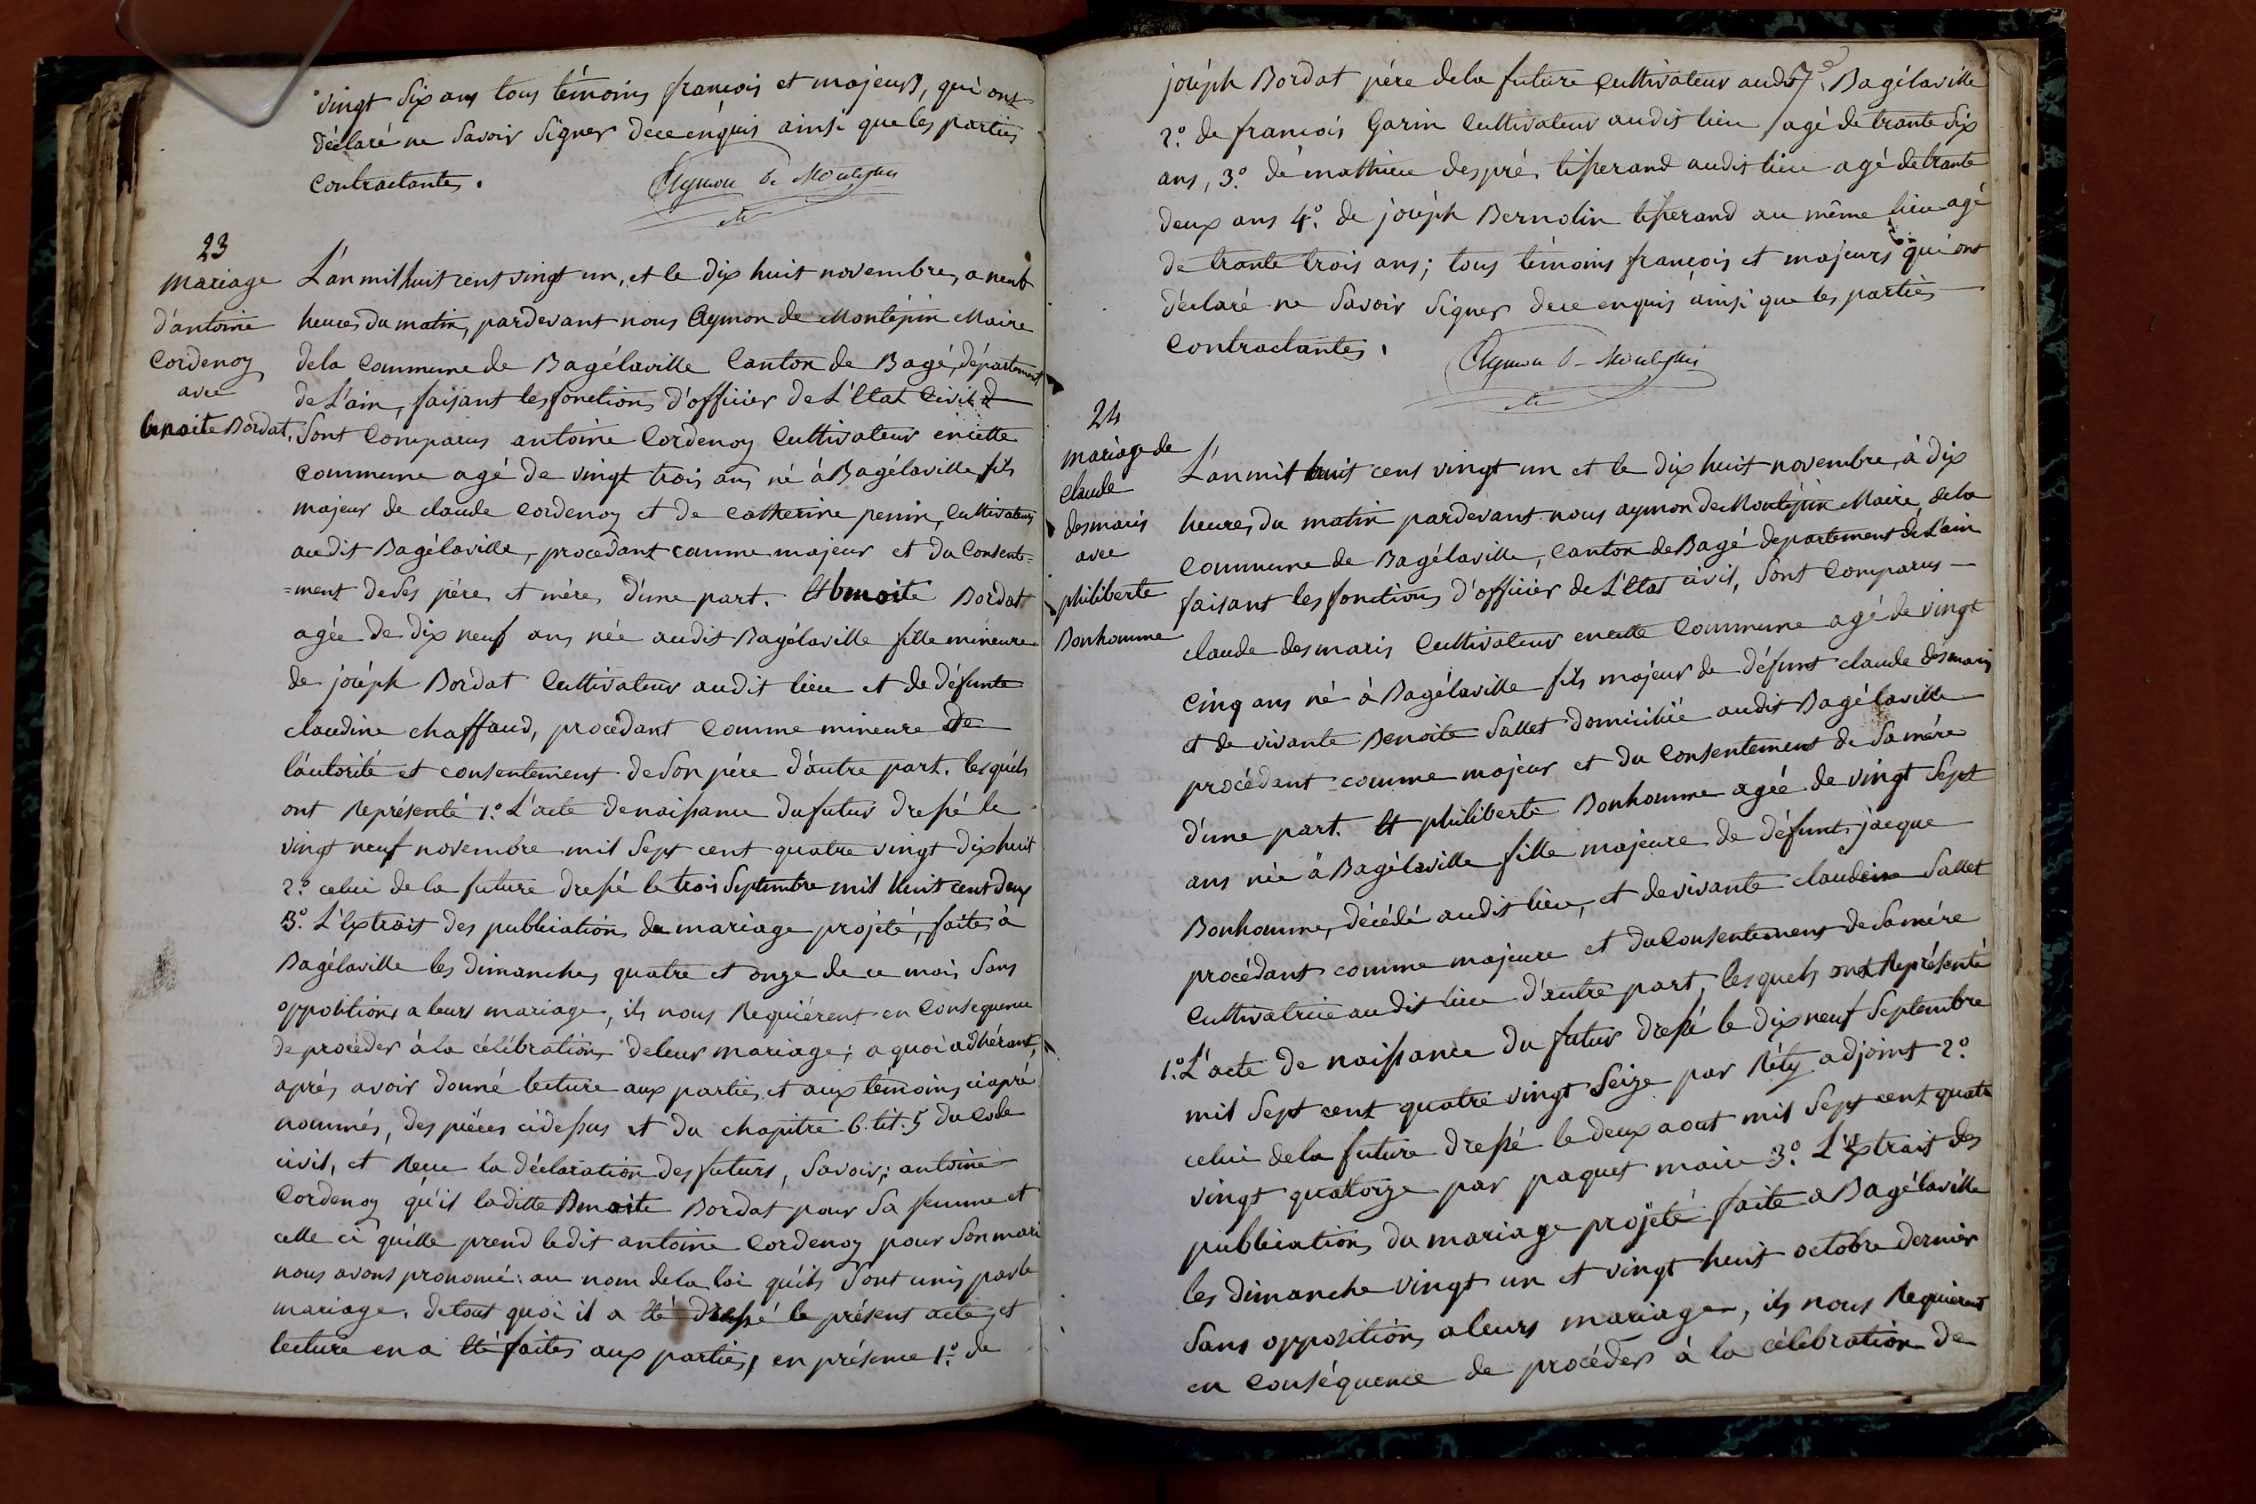 vingt six ans tous témoins françois et majeurs, qui ont
déclaré ne savoir signer de ce enquis ainsi que les parties
contractantes.
Aymon De Montépin
23
mariage
d'antoine
Cordenoy
avec
benoite Bordat.
L'an mil huit cent vingt un, et le dix huit novembre, a neuf
heures du matin, pardevant nous Aymon de Montépin Maire
dela Commune de Bagélaville Canton de Bagé, département
de L'ain, faisant les fonctions d'officier de L'Etat Civil
Sont Comparus antoine Cordenoy Cultivateur en cette
Commune agé de vingt trois ans né à Bagélaville fils
majeur de claude Cordenoy et de Catherine penin, Cultivateurs
audit Bagélaville, procedant comme majeur et du Consente=
=ment de ses père et mère, d'une part. Et benoite Bordat
agée de dix neuf ans née audit Bagélaville fille mineure
de joséph Bordat Cultivateur audit lieu et de défunte
claudine chaffaud, procédant Comme mineure de
l'autorité et consentement de son pére d'autre part. lesquels
ont Représenté 1.° L'acte de naissance du futur dressé le
vingt neuf novembre mil Sept cent quatre vingt dix huit
2.° celui de la future dressé le trois Septembre mil huit cent deux
3.° L'Extrait des publications de mariage projeté, faites à
Bagélaville les dimanches quatre et onze de ce mois Sans
oppositions a leurs mariage, ils nous Requiérent en Conséquence
de procéder à la célébration de leur mariage; a quoi adhérant,
aprés avoir donné lecture aux parties et aux témoins ci aprés
nommés, des piéces cidessus et du chapitre 6. tit. 5 du Code
civil, et Reçu la déclaration des futurs, Savoir; antoine
Cordenoy qu'il ladite Benoite Bordat pour Sa femme et
celle ci qu'elle prend ledit antoine Cordenoy pour Son mari
nous avons prononcé: au nom dela loi qu'ils Sont unis par le
mariage. de tout quoi il a été dressé le présent acte, et
lecture en a été faites aux parties, en présence 1.° de
joséph Bordat pére dela future Cultivateur audit Bagélaville
2.° de francois Garin Cultivateur audit lieu agé de trante Six
ans, 3.° de mathieu després tisserand audit lieu agé de trante
deux ans 4.° de joseph Bernolin tisserand au même lieu agé
de trante trois ans; tous témoins françois et majeurs qui ont
déclaré ne Savoir Signer de ce enquis ainsi que les parties
Contractantes.
Aymon De Montépin
24
mariage de
Claude
desmaris
avec
philiberte
Bonhomme
L'an mil huit cent vingt un et le dix huit novembre, à dix
heures du matin pardevant nous aymon de Montépin Maire dela
Commune de Bagélaville, Canton de Bagé departement de L'ain
faisant les fonctions d'officier de L'Etat civil, Sont Comparus
claude desmaris Cultivateur en cette Commune agé de vingt
Cinq ans né à Bagélaville fils majeur de défunt claude desmaris
et de vivante Benoite Sallet domiciliée audit Bagélaville
procédant comme majeur et du Consentement de Sa mére
d'une part. Et philiberte Bonhomme agée de vingt Sept
ans née à Bagélaville fille majeure de défunt jacque
Bonhomme, décédé audit lieu, et de vivante claudine Sallet
procédant comme majeure et du Consentement de Sa mére
Cultivatrice audit lieu d'autre part, lesquels ont Représenté
1.° L'acte de naissance du futur dressé le dix neuf Septembre
mil Sept cent quatre vingt Seize par Réty adjoint 2.°
celui dela future dressé le deux aout mil Sept cent quatre
vingt quatorze par paquet maire 3.° L'Extrait des
publications du mariage projeté faite a Bagélaville
les dimanche vingt un et vingt huit octobre dernier
Sans oppositions a leurs mariage, ils nous Requiérent
en Conséquence de procéder à la célébration de